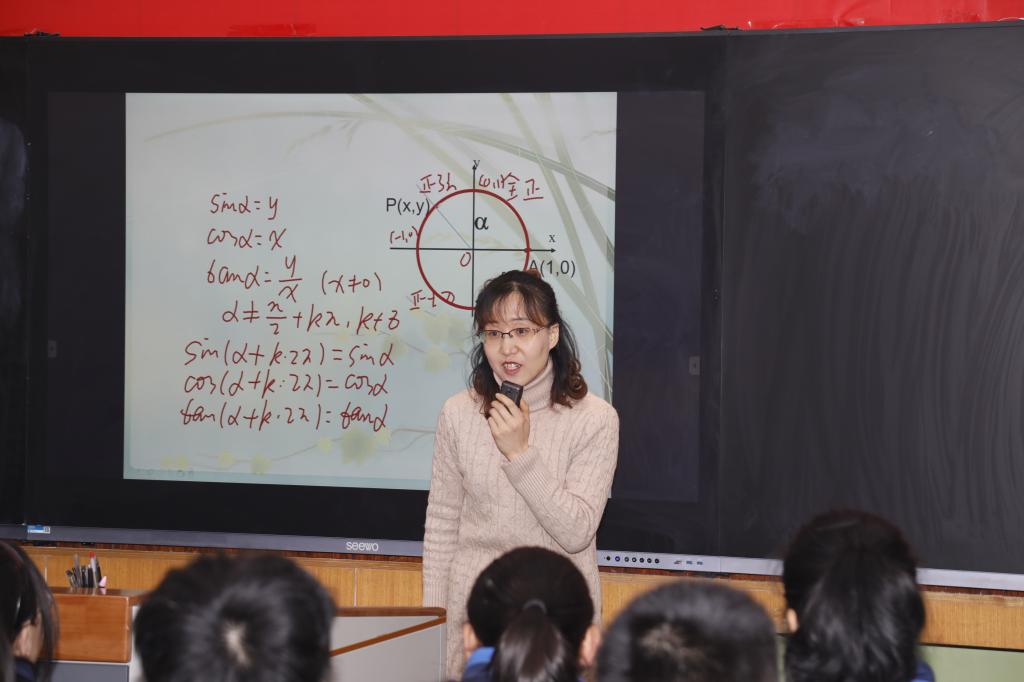 sinα = y
cosα = x
tanα = y/x (x≠0)
α ≠ π/2 + kπ, k∈z
sin(α+k·2π) = sinα
cos(α+k·2π) = cosα
tan(α+k·2π) = tanα
y
P(x,y)
α
全正
(-1,0)
x
O
A(1,0)
seewo